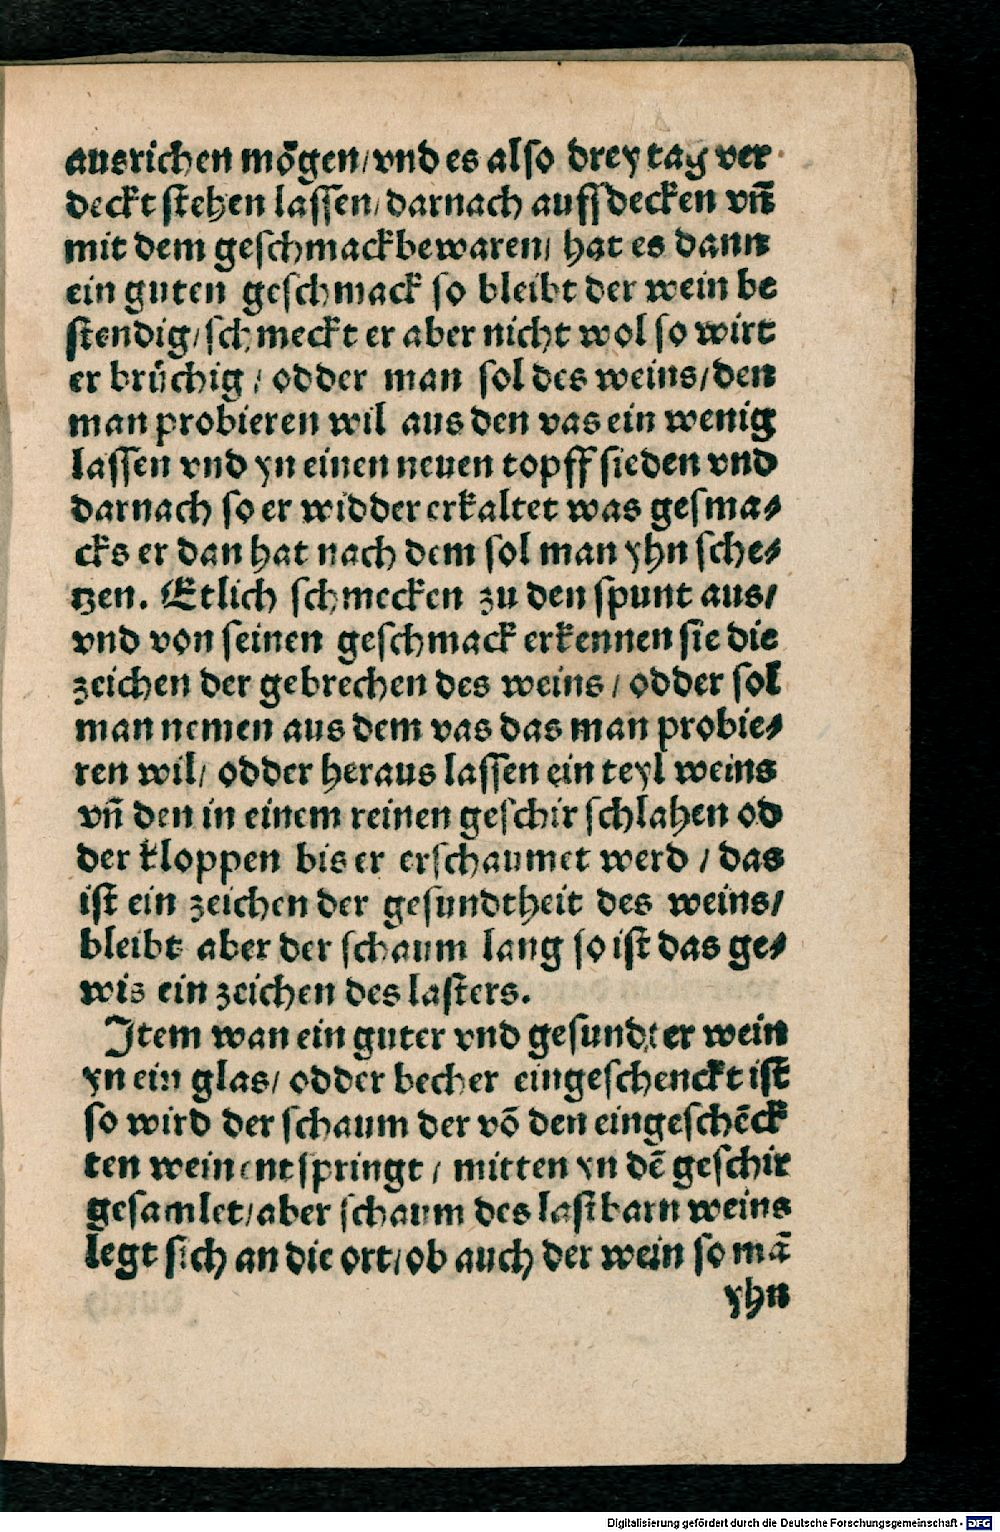 ausrichen mőgen/vnd es also drey tag ver
deckt stehen lassen/darnach auffdecken vn̄
mit dem geschmack bewaren/ hat es dann
ein guten geschmack so bleibt der wein be
stendig/schmeckt er aber nicht wol so wirt
er brüchig / odder man sol des weins/den
man probieren wil aus den vas ein wenig
lassen vnd yn einen neuen topff sieden vnd
darnach so er widder erkaltet was gesma⸗
cks er dan hat nach dem sol man yhn sche⸗
tzen. Etlich schmecken zu den spunt aus/
vnd von seinen geschmack erkennen sie die
zeichen der gebrechen des weins / odder sol
man nemen aus dem vas das man probie⸗
ren wil/ odder heraus lassen ein teyl weins
vn̄ den in einem reinen geschir schlahen od
der kloppen bis er erschaumet werd / das
ist ein zeichen der gesundtheit des weins/
bleibt aber der schaum lang so ist das ge⸗
wis ein zeichen des lasters.
Item wan ein guter vnd gesundter wein
yn ein glas/ odder becher eingeschenckt ist
so wird der schaum der vō den eingeschēck
ten wein entspringt / mitten yn dē geschir
gesamlet/aber schaum des lastbarn weins
legt sich an die ort/ob auch der wein so mā
yhn
Digitalisierung gefördert durch die Deutsche Forschungsgemeinschaft - DFG